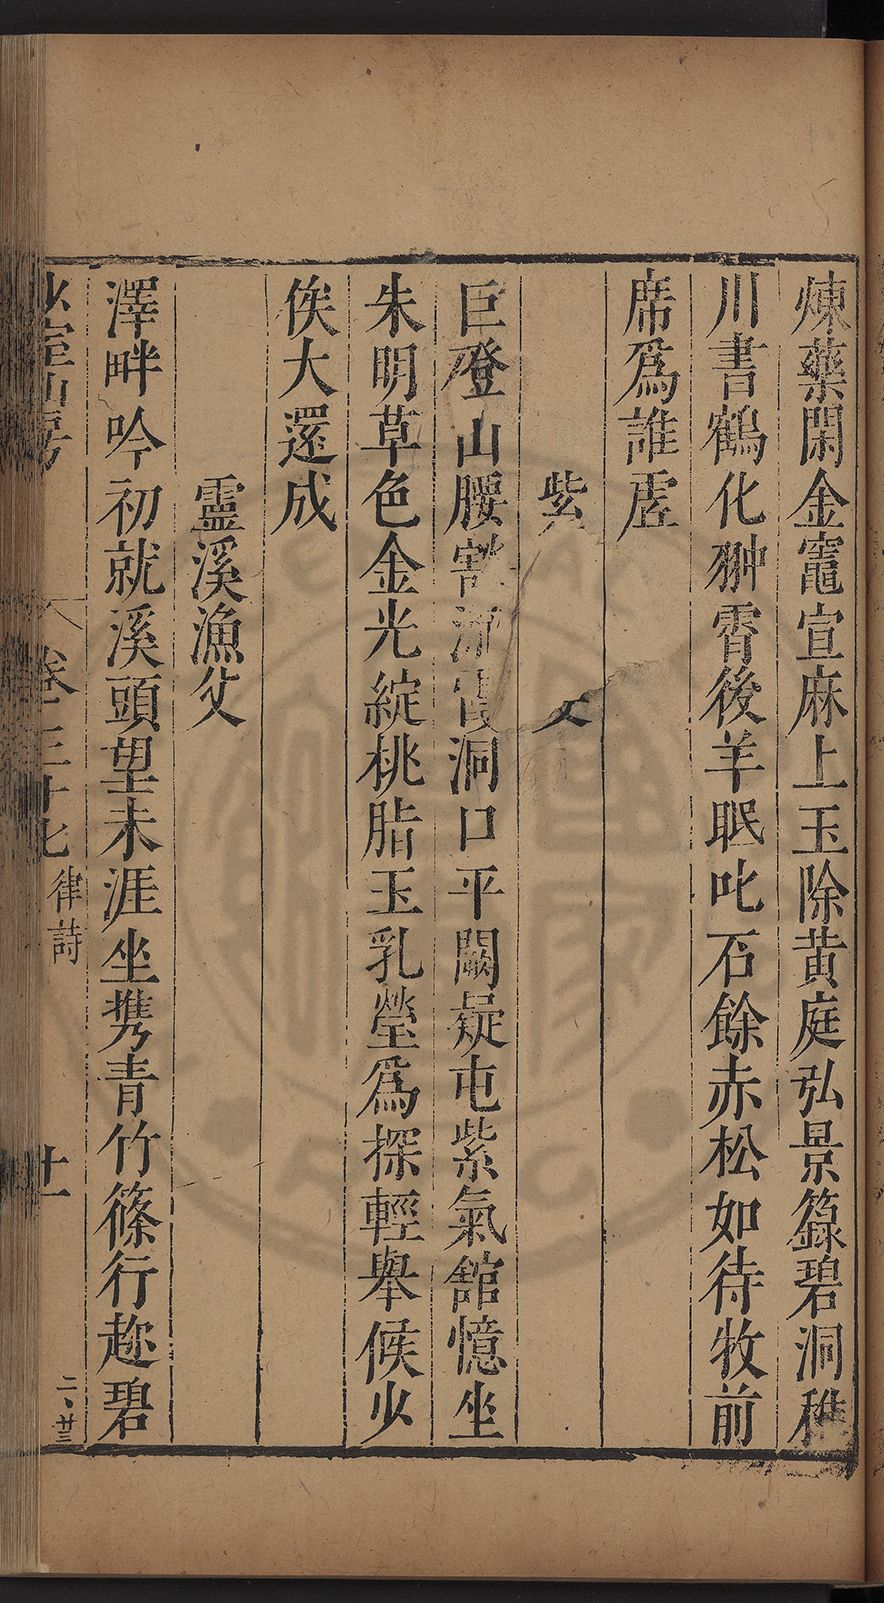 煉藥閑金竈宣麻上玉除黄庭弘景籙碧洞稚
川書鶴化翀霄後羊眠叱石餘赤松如待牧前
席爲誰虗
紫 文
巨磴山腰割流霞洞口平闕疑屯紫氣舘憶坐
朱明草色金光綻桃脂玉乳瑩爲探輕舉候少
俟大還成
靈溪漁父
澤畔吟初就溪頭望未涯坐携青竹篠行趂碧
少室山房 卷之三十七 律詩 廿一 二、廿三